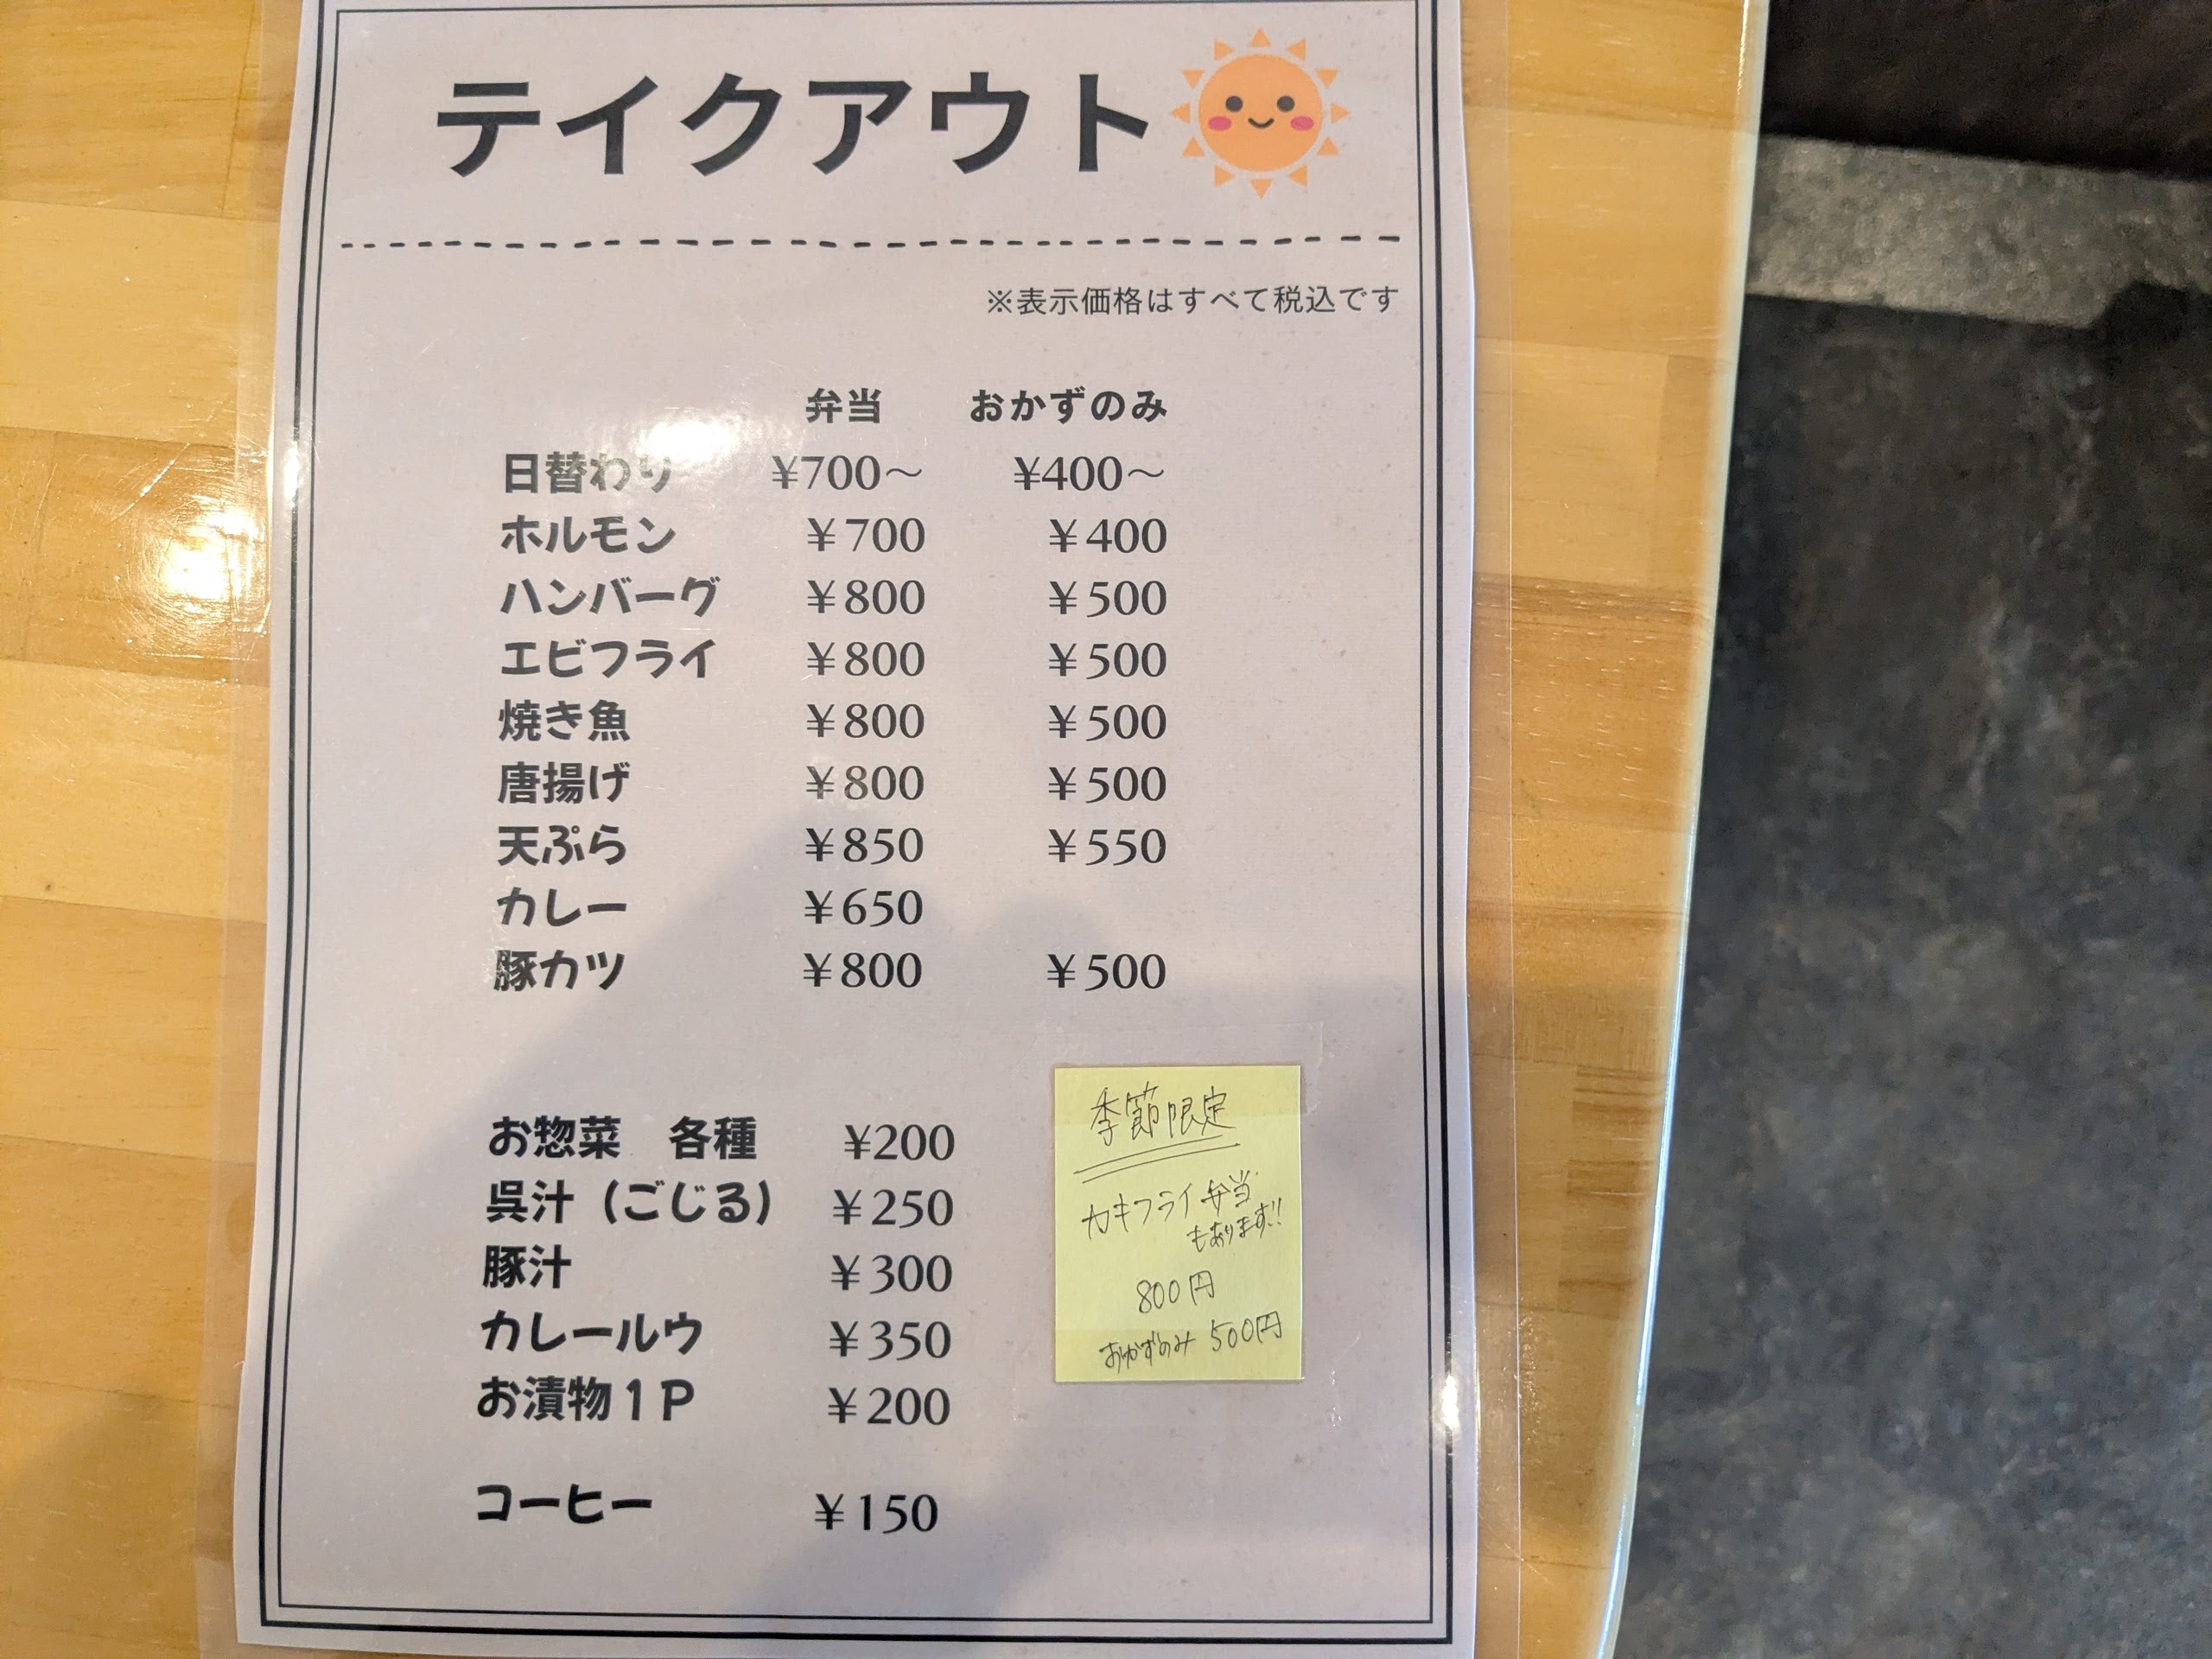 テイクアウト
※表示価格はすべて税込です
弁当 おかずのみ
日替わり ¥700～ ¥400～
ホルモン ¥700 ¥400
ハンバーグ ¥800 ¥500
エビフライ ¥800 ¥500
焼き魚 ¥800 ¥500
唐揚げ ¥800 ¥500
天ぷら ¥850 ¥550
カレー ¥650
豚カツ ¥800 ¥500
お惣菜　各種 ¥200
呉汁（ごじる） ¥250
豚汁 ¥300
カレールウ ¥350
お漬物１Ｐ ¥200
コーヒー ¥150
季節限定
カキフライ弁当
もあります!!
800円
おかずのみ 500円